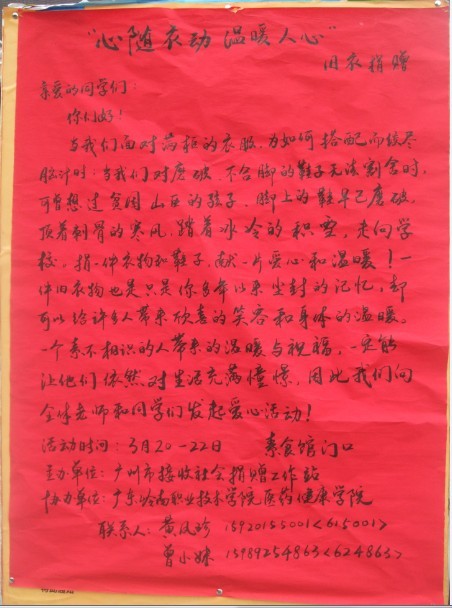 “心随衣动 温暖人心”
旧衣捐赠
亲爱的同学们：
你们好！
当我们面对满柜的衣服，为如何搭配而绞尽
脑汁时；当我们对磨破、不合脚的鞋子无法割舍时，
可曾想过贫困山区的孩子，脚上的鞋早已磨破，
顶着刺骨的寒风，踏着冰冷的积雪，走向学
校。捐一件衣物和鞋子，献一片爱心和温暖！一
件旧衣物也是只是你多年以来尘封的记忆，却
可以给许多人带来欣喜的笑容和身体的温暖。
一个素不相识的人带来的温暖与祝福，一定能
让他们依然对生活充满憧憬，因此我们向
全体老师和同学们发起爱心活动！
活动时间：3月20-22日 素食馆门口
主办单位：广州市接收社会捐赠工作站
协办单位：广东岭南职业技术学院医药健康学院
联系人：黄凤珍 15920155001<615001>
曾小妹 15989254863<624863>